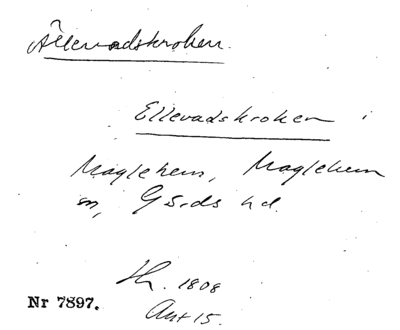 Ällevadskroken.
Ellevadskroken i
Maglehem, Maglehem
sn, Gärds hd.
Sk. 1808
Akt 15.
Nr 7897.